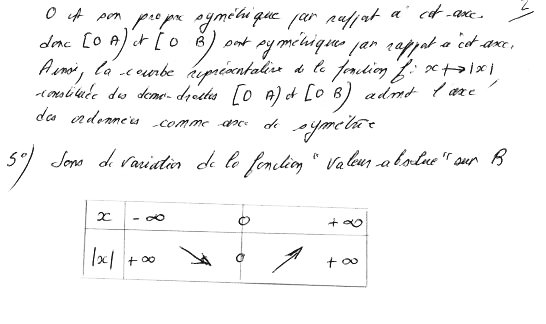 2
O est son propre symétrique par rapport à cet axe.
donc [O A) et [O B) sont symétriques par rapport à cet axe.
Ainsi, la courbe représentative de la fonction f: x ↦ |x|,
constituée des demi-droites [O A) et [O B) admet l'axe
des ordonnées comme axe de symétrie
5°) Sens de variation de la fonction "valeur absolue" sur R
x -∞ 0 +∞
|x| +∞ ↘ 0 ↗ +∞